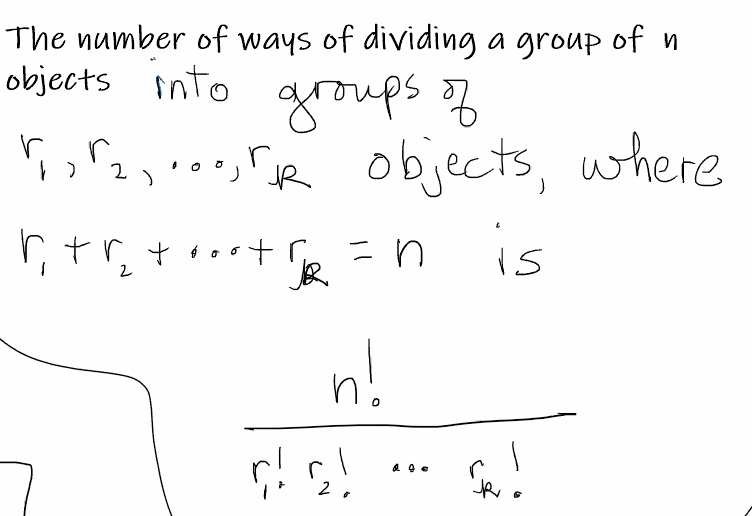 The number of ways of dividing a group of n
objects into groups of
r₁, r₂, ..., rₖ objects, where
r₁ + r₂ + ... + rₖ = n is
n!
r₁! r₂! ... rₖ!